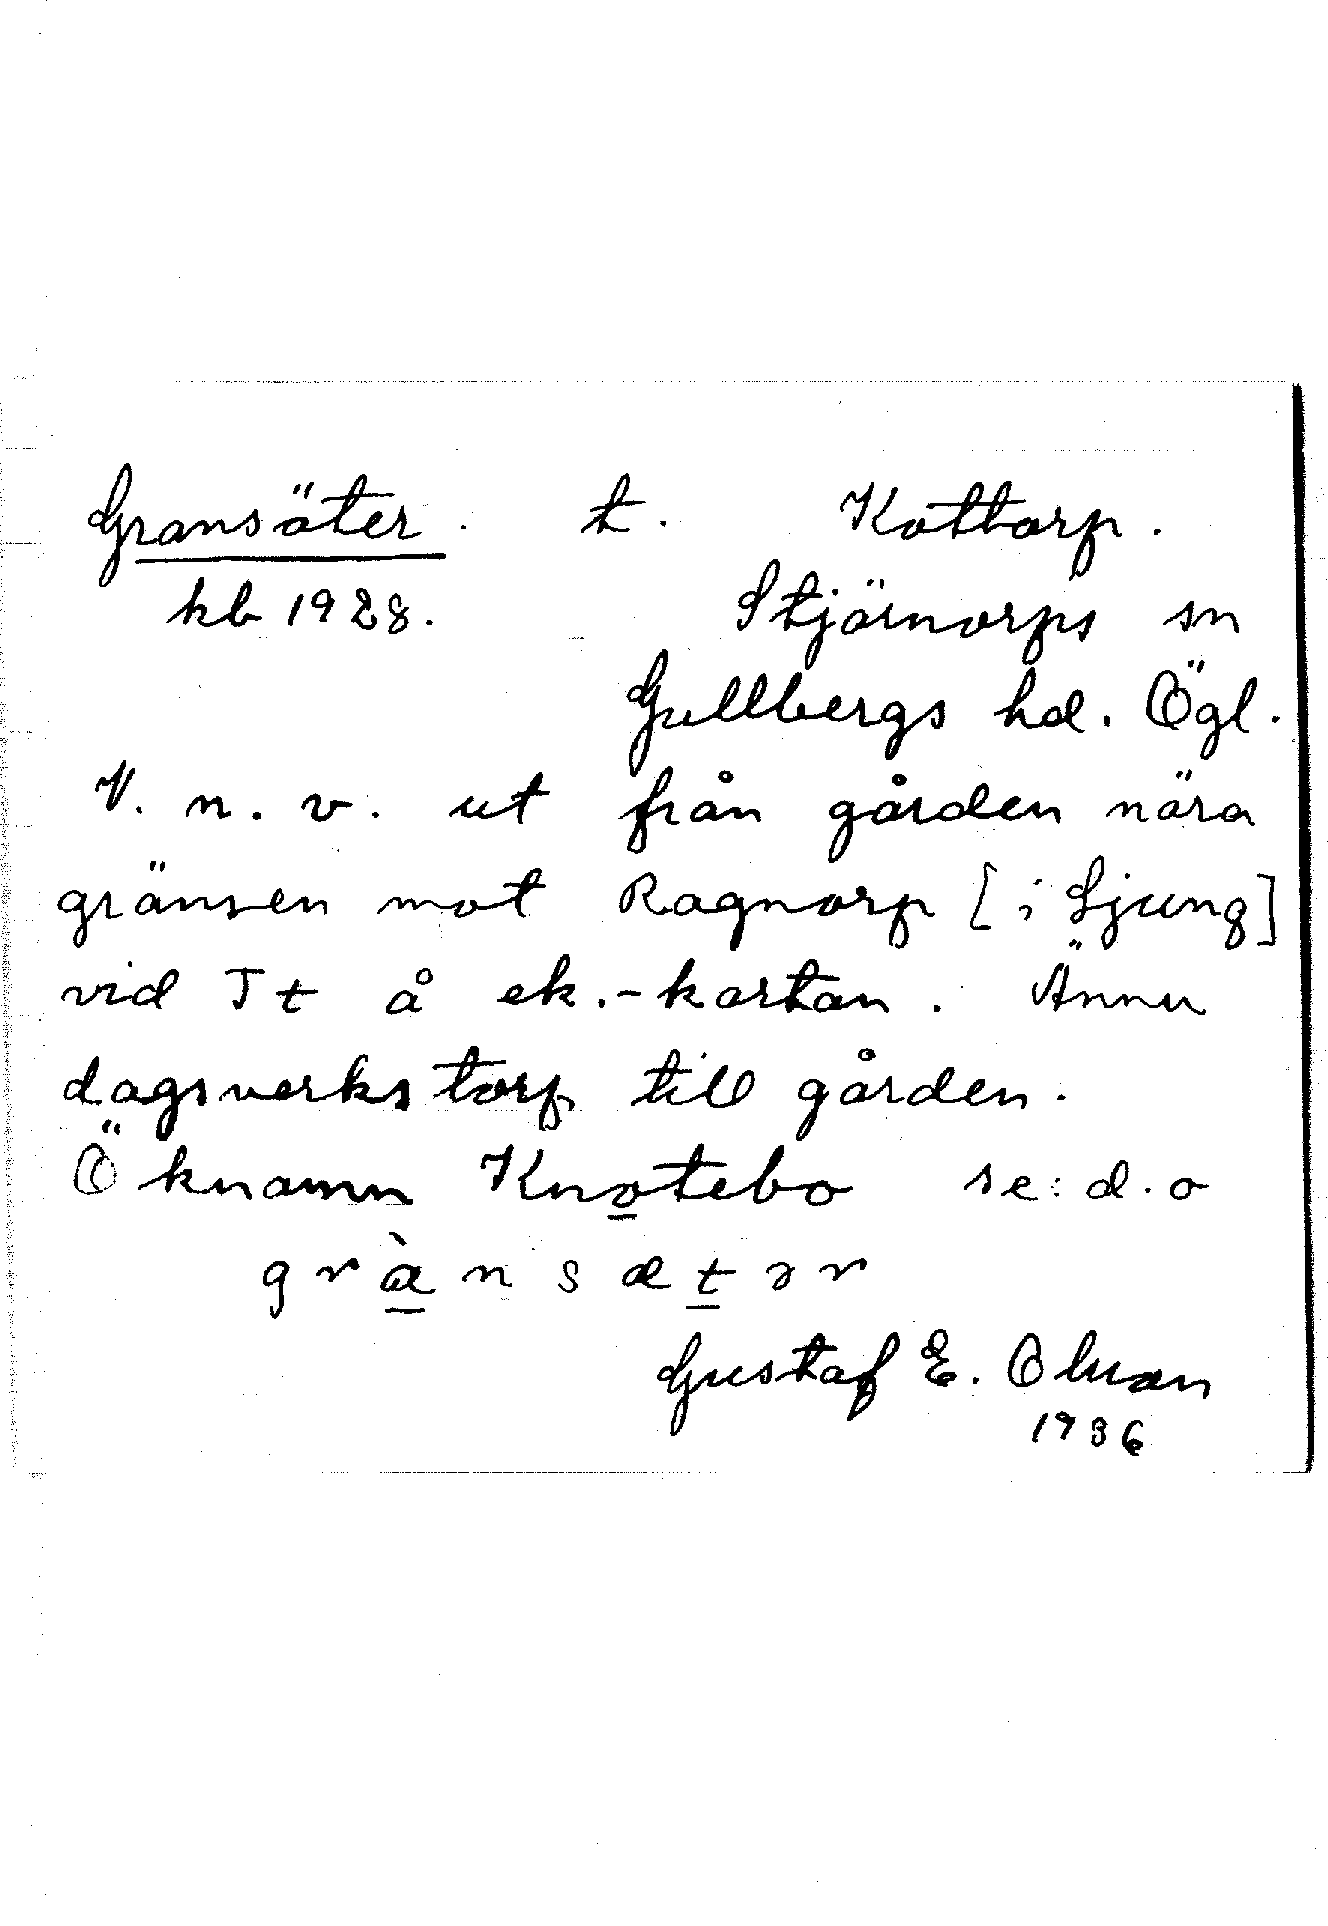 Gransäter. t. Kottorp.
kb 1928. Stjärnorps sn
Gullbergs hd. Ögl.
V. n. v. ut från gården nära
gränsen mot Ragnorp [i Ljung]
vid Tt å ek.-kartan. Ännu
dagsverkstorp till gården.
Öknamn Knotebo se: d.o
grànsætər
Gustaf E. Olson
1936